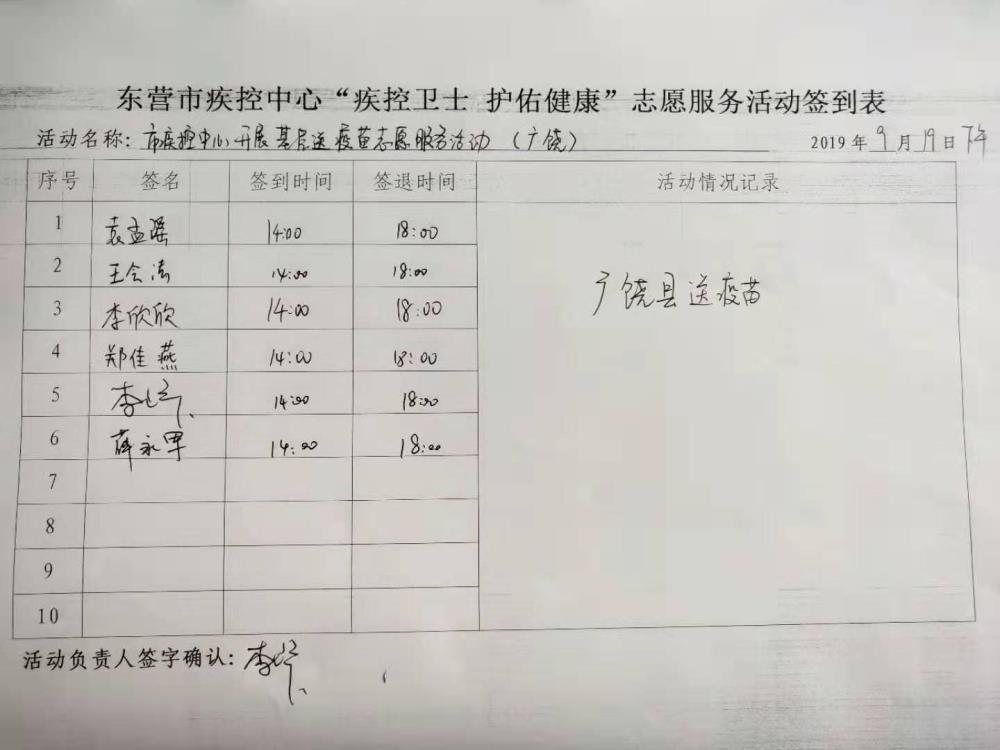 东营市疾控中心“疾控卫士 护佑健康”志愿服务活动签到表
活动名称：市疾控中心开展基层送疫苗志愿服务活动（广饶） 2019年9月19日下午
序号 签名 签到时间 签退时间 活动情况记录
1 袁孟瑶 14:00 18:00
2 王会涛 14:00 18:00
广饶县送疫苗
3 李欣欣 14:00 18:00
4 郑佳燕 14:00 18:00
5 李 14:00 18:00
6 薛永军 14:00 18:00
7
8
9
10
活动负责人签字确认：李